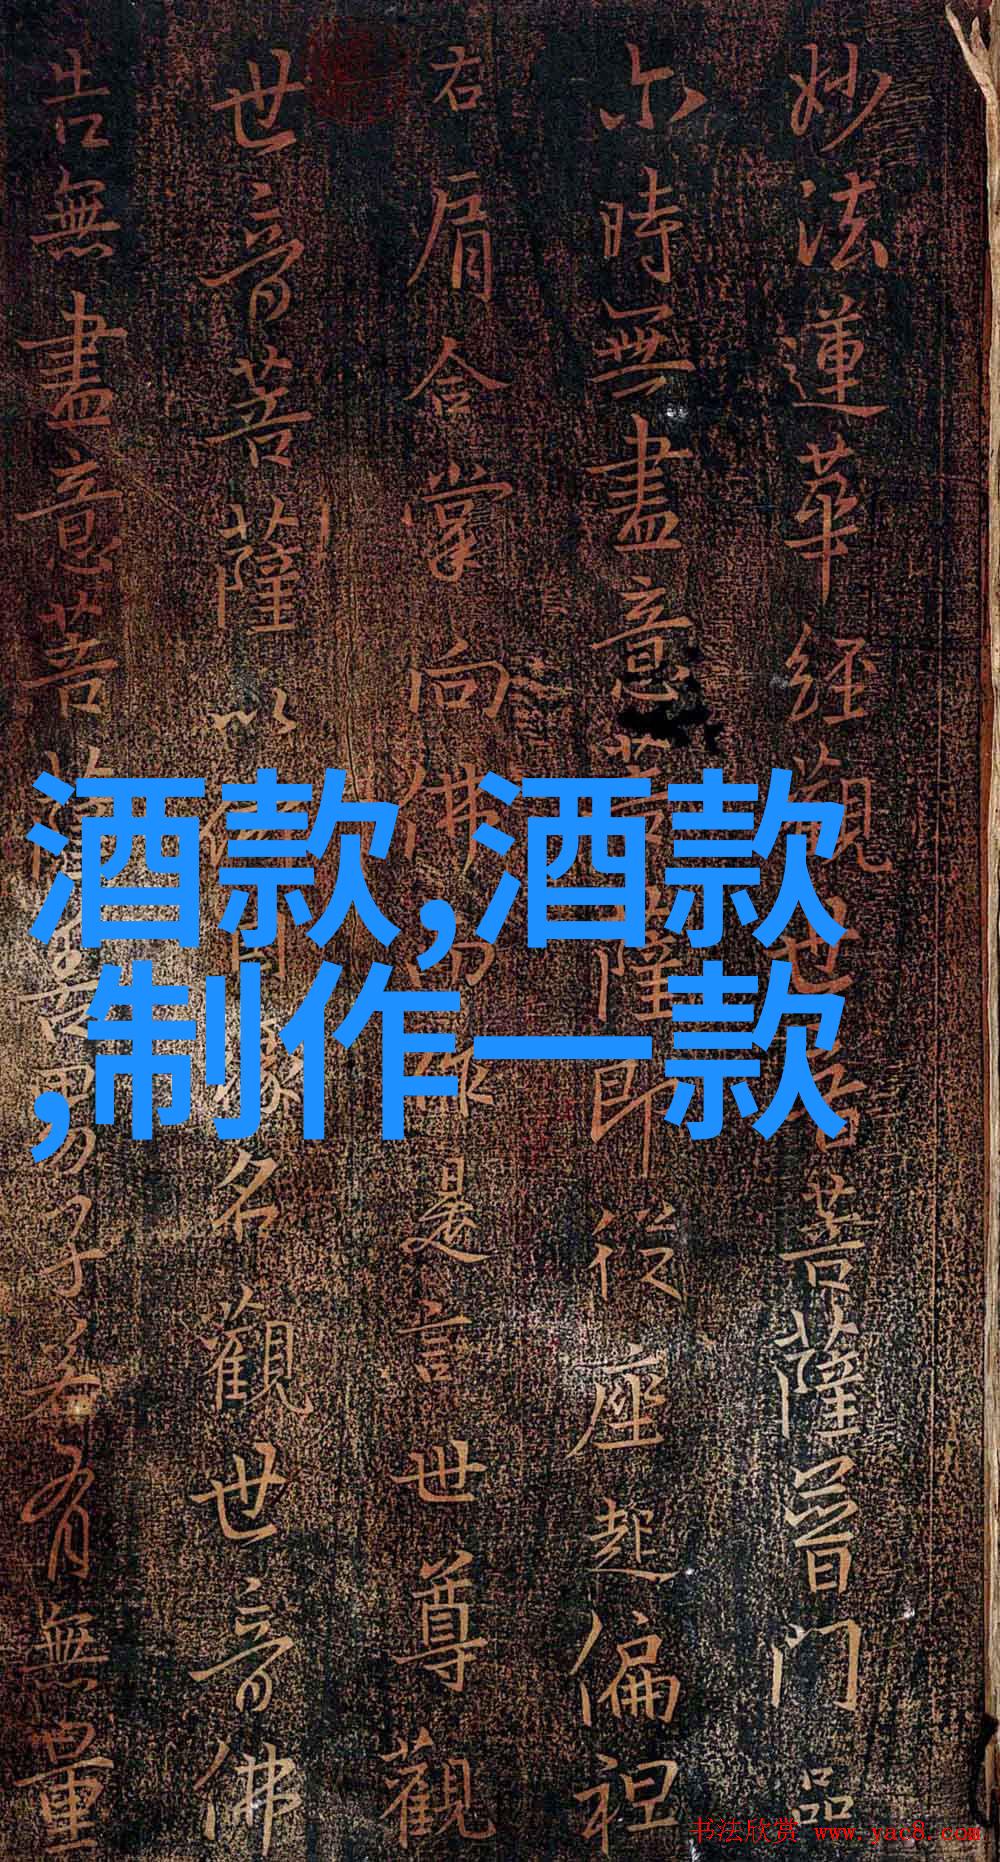 妙法蓮華經觀世音菩薩普門品
尒時無盡意菩薩即從座起偏袒
右肩合掌向佛而作是言世尊觀
世音菩薩以何因緣名觀世音佛
告無盡意菩薩善男子若有無量
酒款,酒款
,制作一款
书法欣赏 www.yac8.com